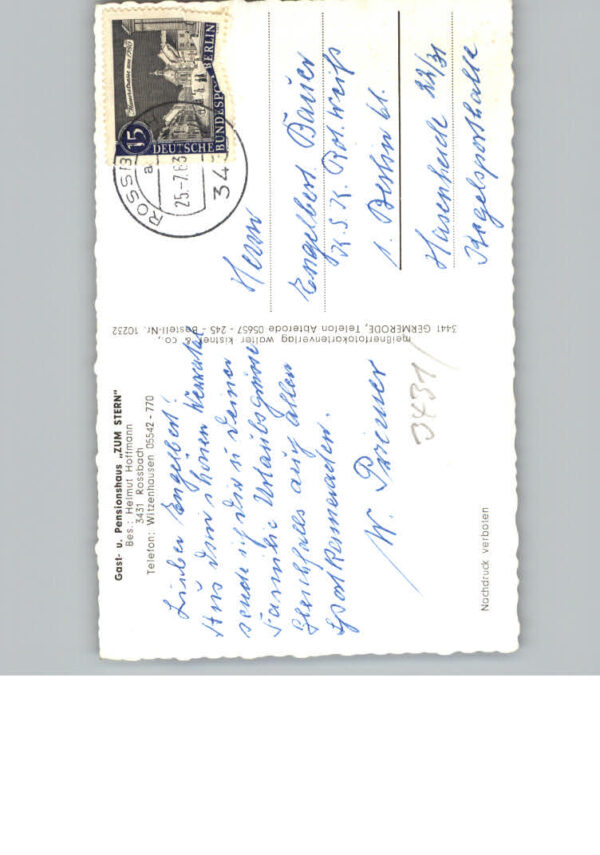 Gast- u. Pensionshaus „ZUM STERN"
Bes.: Helmut Hoffmann
3431 Rossbach
Telefon: Witzenhausen 05542 - 770
Lieber Engelbert!
Aus dem schönen Werratal
sende ich dir u deiner
Familie Urlaubsgrüsse
Gleichfalls auch allen
Sportkameraden.
W.
3431/
Nachdruck verboten
meißnerfotokartenverlag walter kistner & co.,
3441 GERMERODE, Telefon Abterode 05657 - 245 - Bestell-Nr. 10232
15
DEUTSCHE
BUNDESPOST BERLIN
ROSSB
a
25-7.63
343
Herrn
Engelbert Bauer
K.S.K. Rot. Weiß
1. Berlin 61.
Hasenheide 22/31
Kegelsporthalle